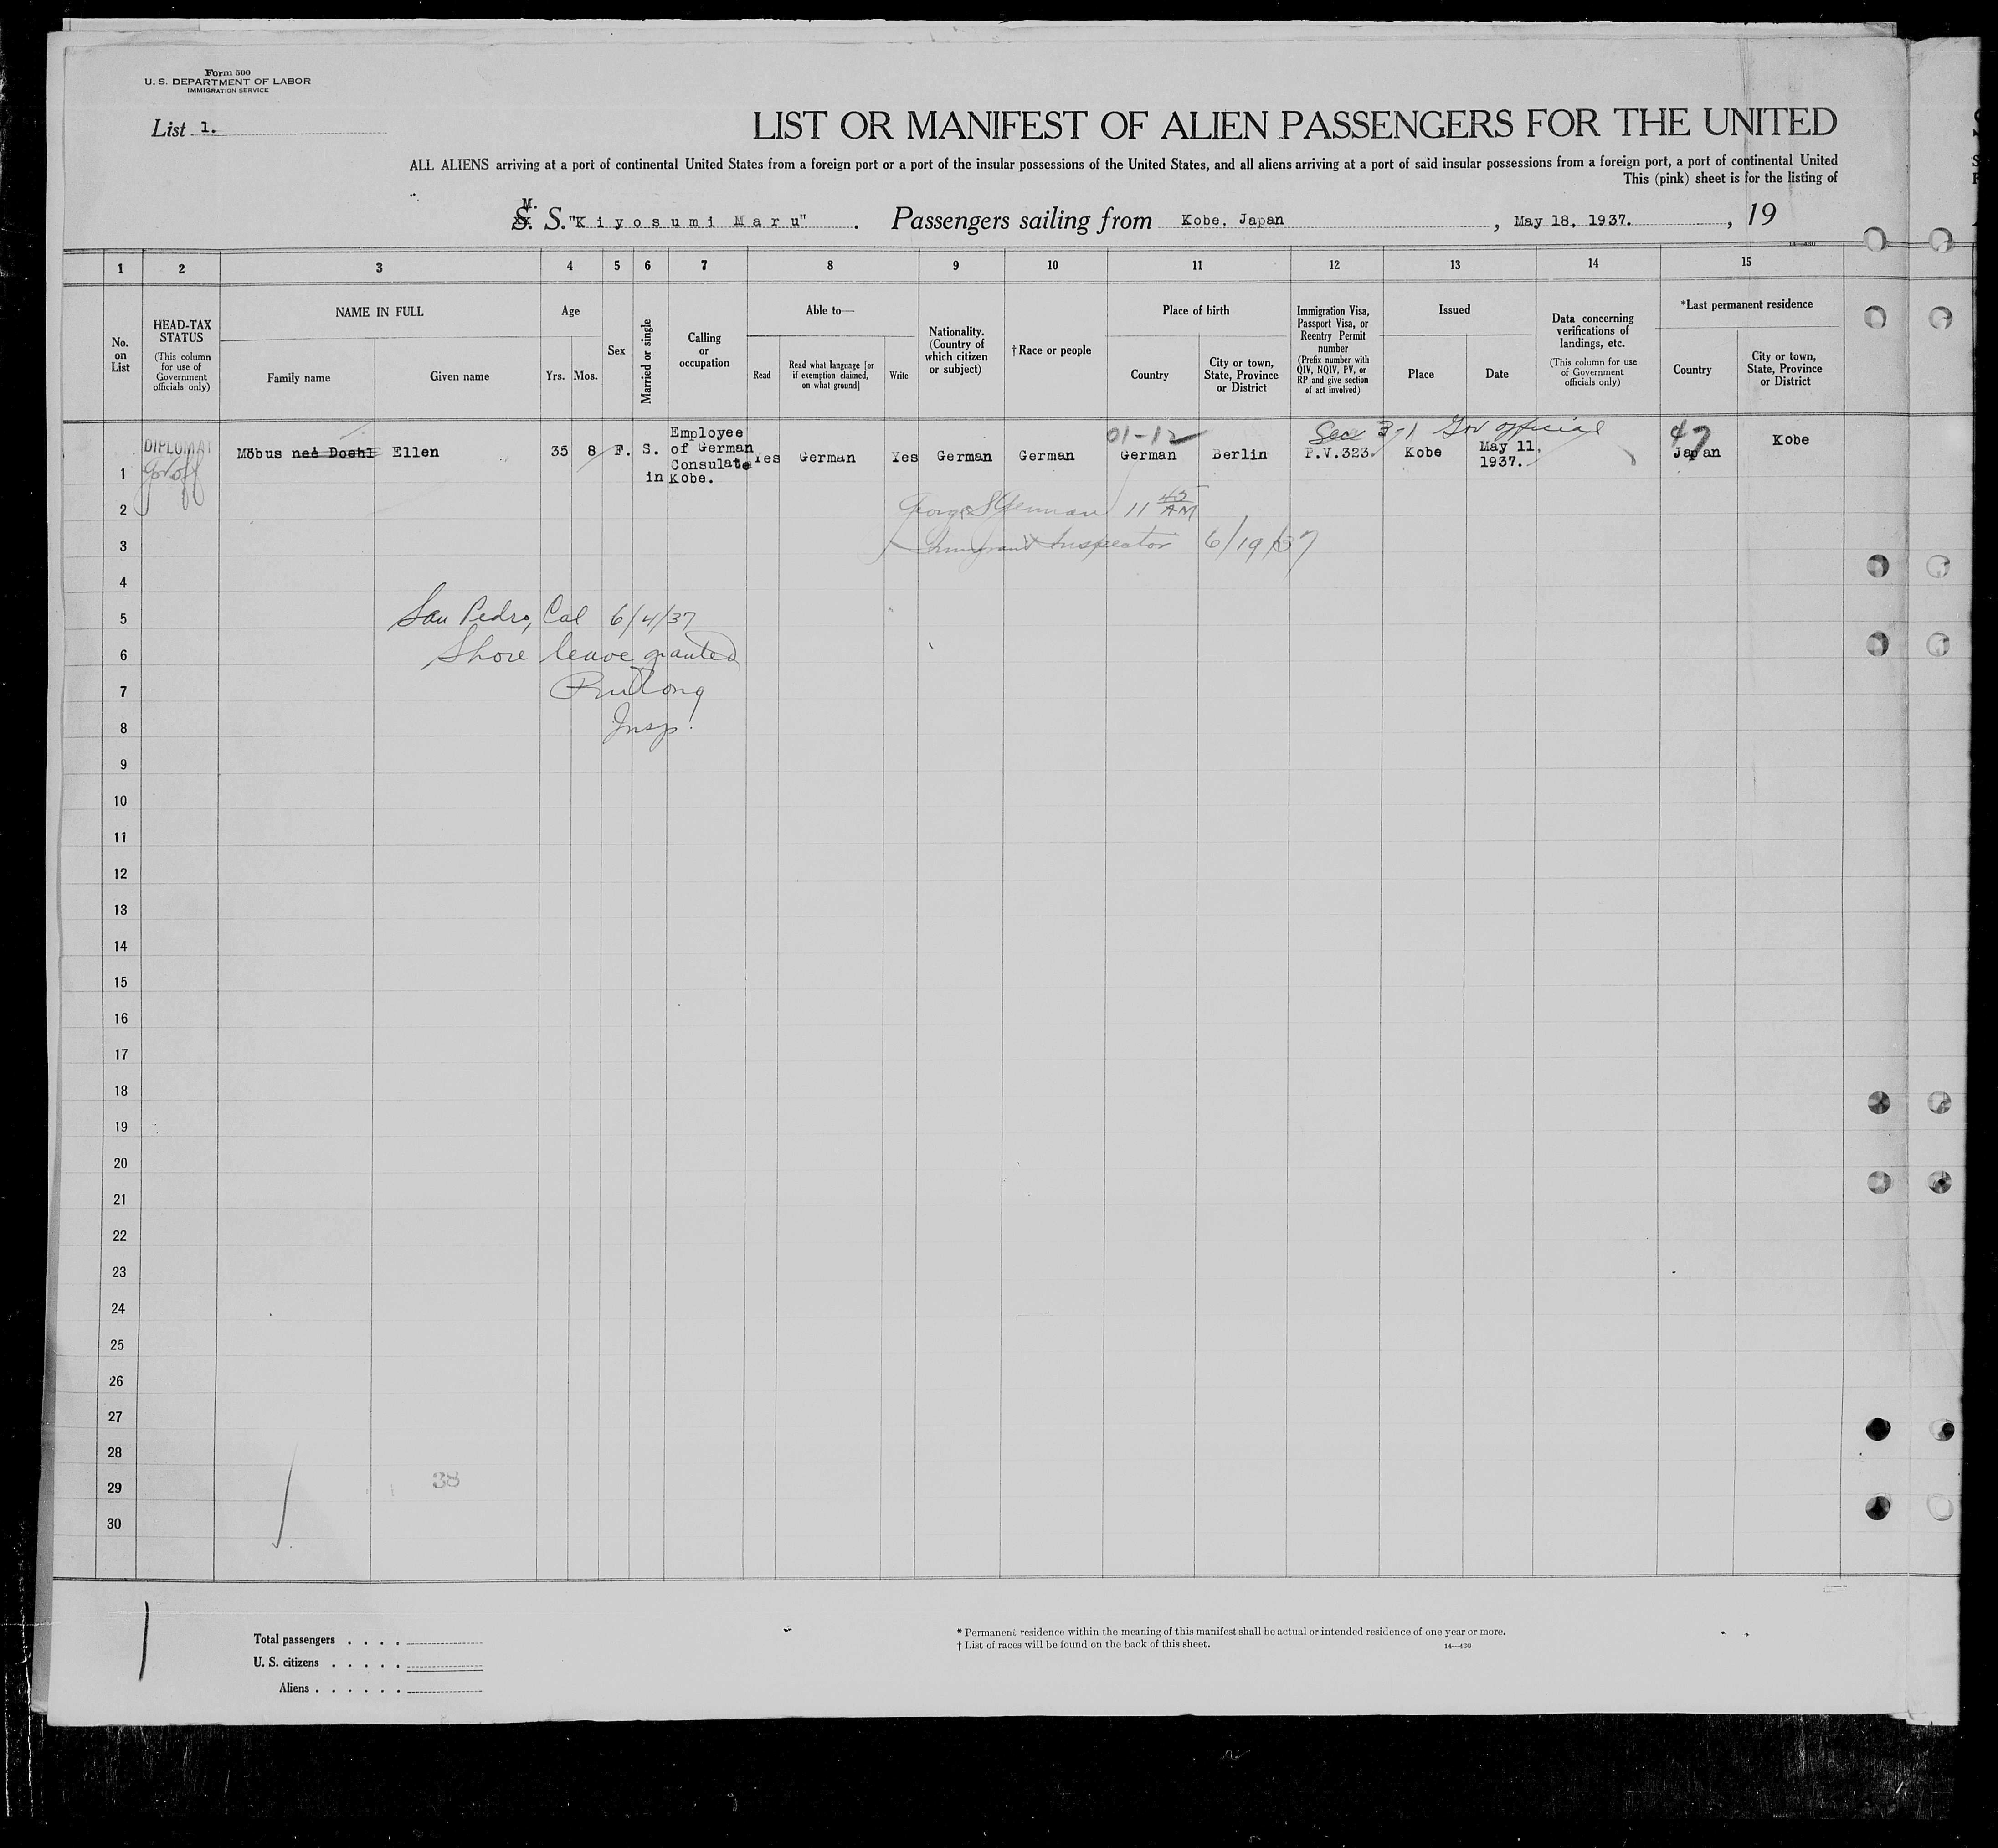 Form 500
U. S. DEPARTMENT OF LABOR
IMMIGRATION SERVICE
List 1.
LIST OR MANIFEST OF ALIEN PASSENGERS FOR THE UNITED
ALL ALIENS arriving at a port of continental United States from a foreign port or a port of the insular possessions of the United States, and all aliens arriving at a port of said insular possessions from a foreign port, a port of continental United
This (pink) sheet is for the listing of
M.
S. S. "Kiyosumi Maru". Passengers sailing from Kobe, Japan, May 18, 1937., 19
14—430
1 2 3 4 5 6 7 8 9 10 11 12 13 14 15
No. on List
HEAD-TAX STATUS
(This column for use of Government officials only)
NAME IN FULL
Family name
Given name
Age
Yrs. Mos.
Sex
Married or single
Calling or occupation
Able to—
Read
Read what language [or if exemption claimed, on what ground]
Write
Nationality. (Country of which citizen or subject)
†Race or people
Place of birth
Country
City or town, State, Province or District
Immigration Visa, Passport Visa, or Reentry Permit number
(Prefix number with QIV, NQIV, PV, or RP and give section of act involved)
Issued
Place
Date
Data concerning verifications of landings, etc.
(This column for use of Government officials only)
*Last permanent residence
Country
City or town, State, Province or District
01-12 Sec 3-1 Gov official 47
DIPLOMAT
Gov off
1 Möbus neé Doehl Ellen 35 8 F. S. Employee of German Consulate in Kobe. Yes German Yes German German German Berlin P.V.323. Kobe May 11, 1937. Japan Kobe
2 George S German 11 45 AM
3 Immigrant Inspector 6/19/37
4
5 San Pedro, Cal 6/4/37
6 Shore leave granted
7
8 Insp.
9
10
11
12
13
14
15
16
17
18
19
20
21
22
23
24
25
26
27
28
29 38
30
Total passengers . . . .
U. S. citizens . . . . .
Aliens . . . . . .
* Permanent residence within the meaning of this manifest shall be actual or intended residence of one year or more.
† List of races will be found on the back of this sheet.
14—430